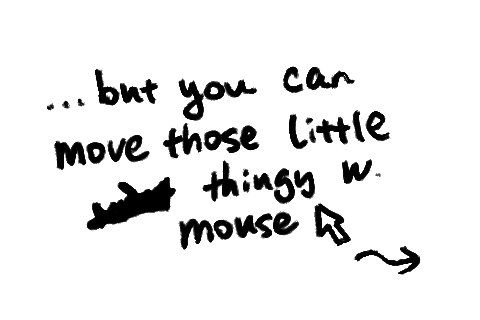 ...but you can
move those little
thingy w.
mouse